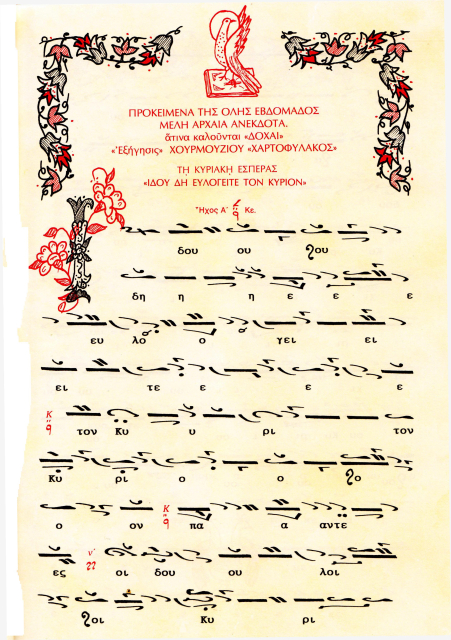 ΠΡΟΚΕΙΜΕΝΑ ΤΗΣ ΟΛΗΣ ΕΒΔΟΜΑΔΟΣ
ΜΕΛΗ ΑΡΧΑΙΑ ΑΝΕΚΔΟΤΑ,
ἅτινα καλοῦνται «ΔΟΧΑΙ»
«Ἐξήγησις» ΧΟΥΡΜΟΥΖΙΟΥ «ΧΑΡΤΟΦΥΛΑΚΟΣ»
ΤΗ ΚΥΡΙΑΚΗ ΕΣΠΕΡΑΣ
«ΙΔΟΥ ΔΗ ΕΥΛΟΓΕΙΤΕ ΤΟΝ ΚΥΡΙΟΝ»
Ἦχος Α΄ Κε.
Ι δου ου ου
δη η η ε ε ε
ευ λο ο γει ει
ει τε ε ε ε
τον Κυ υ ρι τον
Κυ ρι ο ο ο
ο ον πα α αντε
ες οι δου ου λοι
οι Κυ ρι